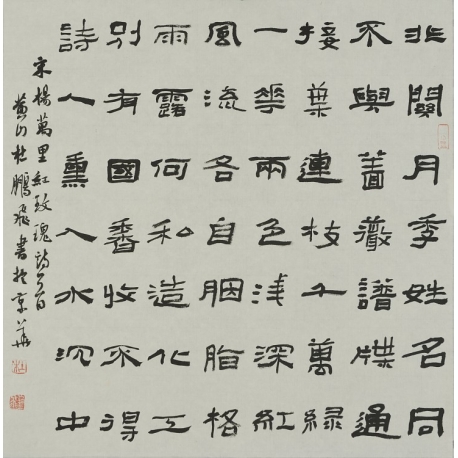 非關月季姓名同
不與薔薇譜牒通
接葉連枝千萬綠
一華兩色淺深紅
風流各自胭脂格
雨露何私造化工
別有國香收不得
詩人熏入水沉中
宋楊萬里紅玫瑰詩一首
黃山杜鵬飛書於京華